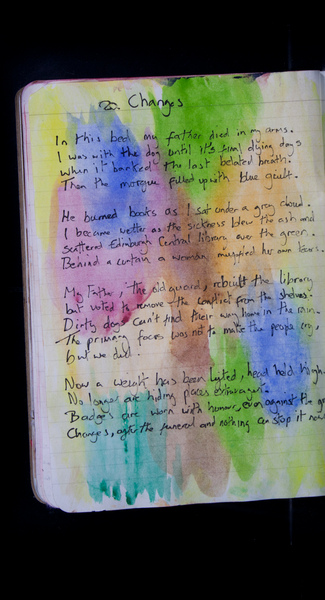 20. Changes
In this bed my father died in my arms.
I was with the dog until its final dying days
when it banked the last belated breath.
Then the morgue filled up with blue guilt.
He burned books as I sat under a grey cloud.
I became wetter as the sickness blew the ash and
scattered Edinburgh Central library over the green.
Behind a curtain a woman magnified her own tears.
My Father, the old guard, rebuilt the library
but voted to remove the from the shelves.
Dirty dogs can't find their way home in the rain.
The primary focus was not to make the people cry,
but we did.
Now a weight has been lifted, head held high.
No longer are hiding places extravagant.
Badges are worn with humour, even against the
Changes, after the funeral and nothing can stop it now